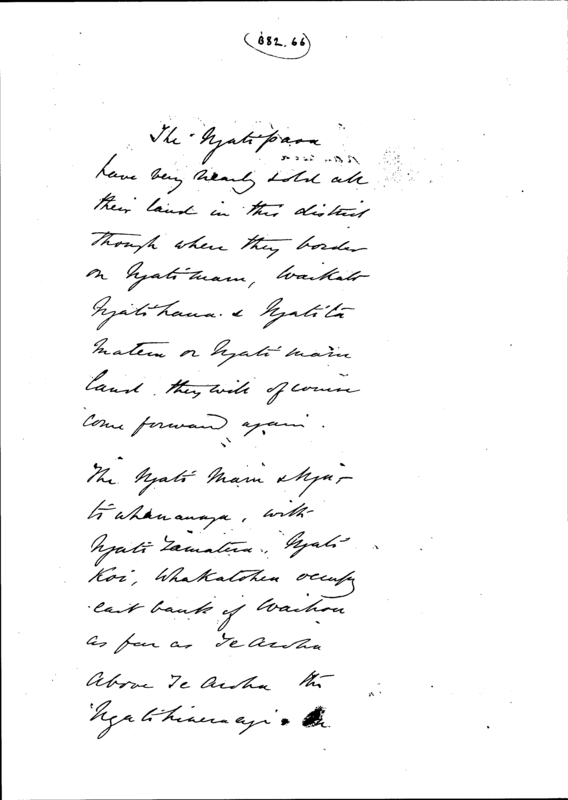 (B82.66)
The Ngatipaoa
have very nearly sold all
their land in this district
though where they border
on Ngatimaru, Waikato
Ngatihaua & Ngatita
matera or Ngati maru
land they will of course
come forward again.
The Ngati Maru & Nga-
ti whanaunga, with
Ngati Tamatera, Ngati
Koi, Whakatohea occupy
east bank of Waihou
as far as Te Aroha
Above Te Aroha the
Ngati &